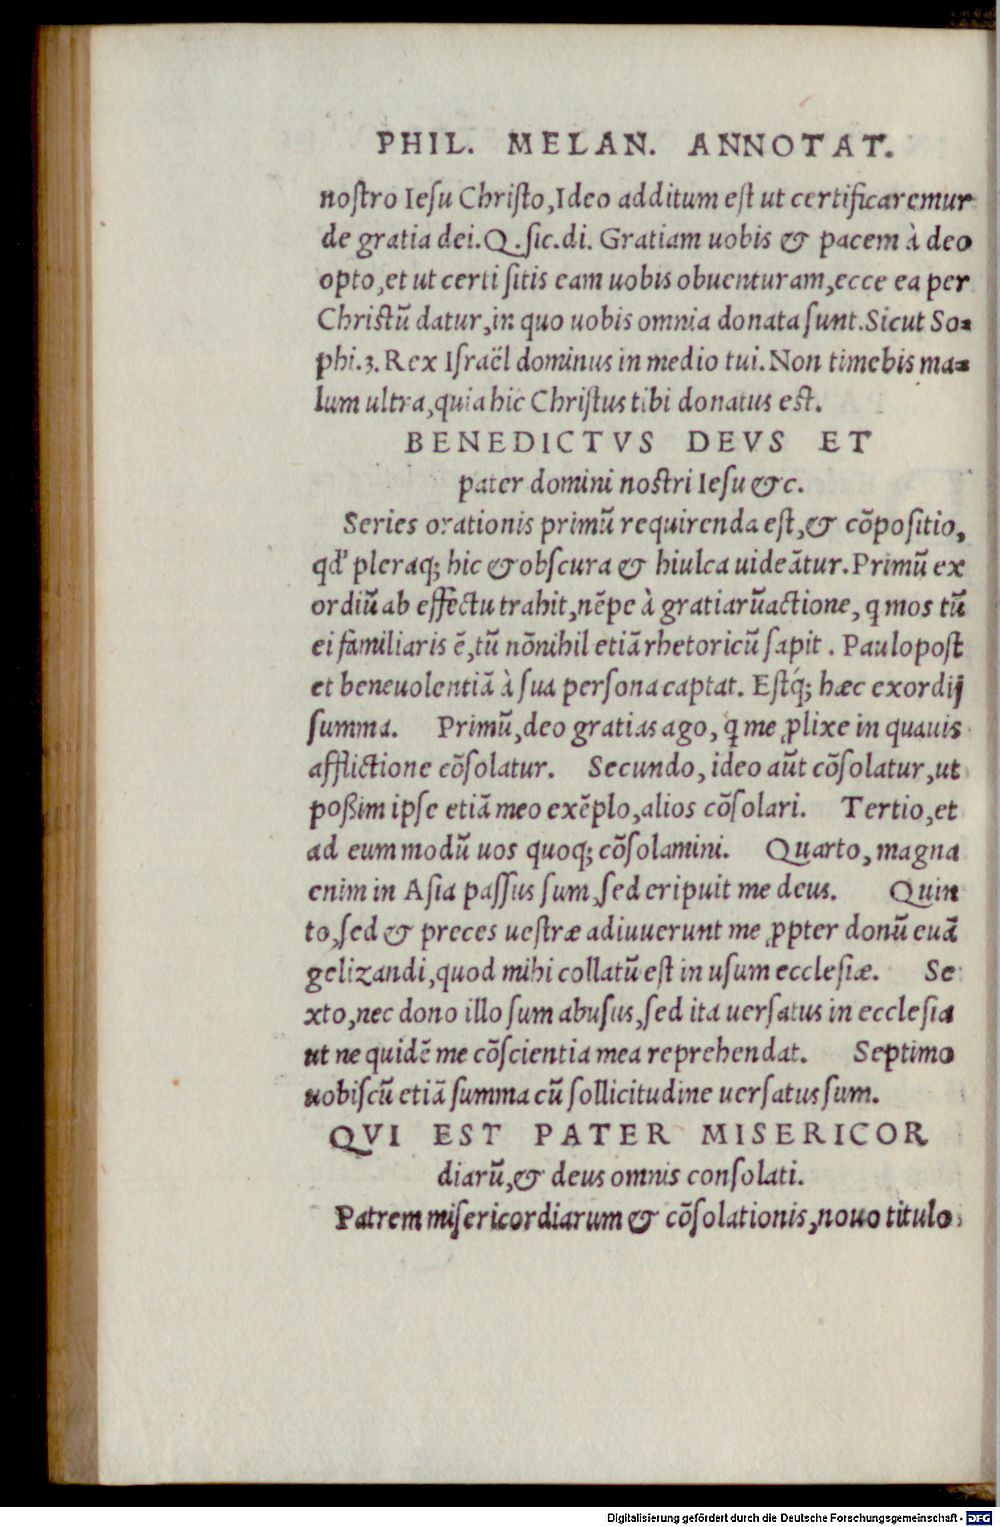 PHIL. MELAN. ANNOTAT.
nostro Iesu Christo, Ideo additum est ut certificaremur
de gratia dei. Q. sic. di. Gratiam uobis & pacem à deo
opto, et ut certi sitis eam uobis obuenturam, ecce ea per
Christũ datur, in quo uobis omnia donata sunt. Sicut So=
phi. 3. Rex Israël dominus in medio tui. Non timebis ma=
lum ultra, quia hic Christus tibi donatus est.
BENEDICTVS DEVS ET
pater domini nostri Iesu &c.
Series orationis primũ requirenda est, & cõpositio,
qd' pleraq; hic & obscura & hiulca uideãtur. Primũ ex
ordiũ ab effectu trahit, nẽpe à gratiarũactione, q mos tũ
ei familiaris ẽ, tũ nõnihil etiã rhetoricũ sapit. Paulopost
et beneuolentiã à sua persona captat. Estq́; hæc exordij
summa. Primũ, deo gratias ago, q̣ me ꝓlixe in quauis
afflictione cõsolatur. Secundo, ideo aũt cõsolatur, ut
poßim ipse etiã meo exẽplo, alios cõsolari. Tertio, et
ad eum modũ uos quoq; cõsolamini. Quarto, magna
enim in Asia passus sum, sed eripuit me deus. Quin
to, sed & preces uestræ adiuuerunt me ꝓpter donũ euã
gelizandi, quod mihi collatũ est in usum ecclesiæ. Se
xto, nec dono illo sum abusus, sed ita uersatus in ecclesia
ut ne quidẽ me cõscientia mea reprehendat. Septimo
uobiscũ etiã summa cũ sollicitudine uersatus sum.
QVI EST PATER MISERICOR
diarũ, & deus omnis consolati.
Patrem misericordiarum & cõsolationis, nouo titulo
Digitalisierung gefördert durch die Deutsche Forschungsgemeinschaft - DFG